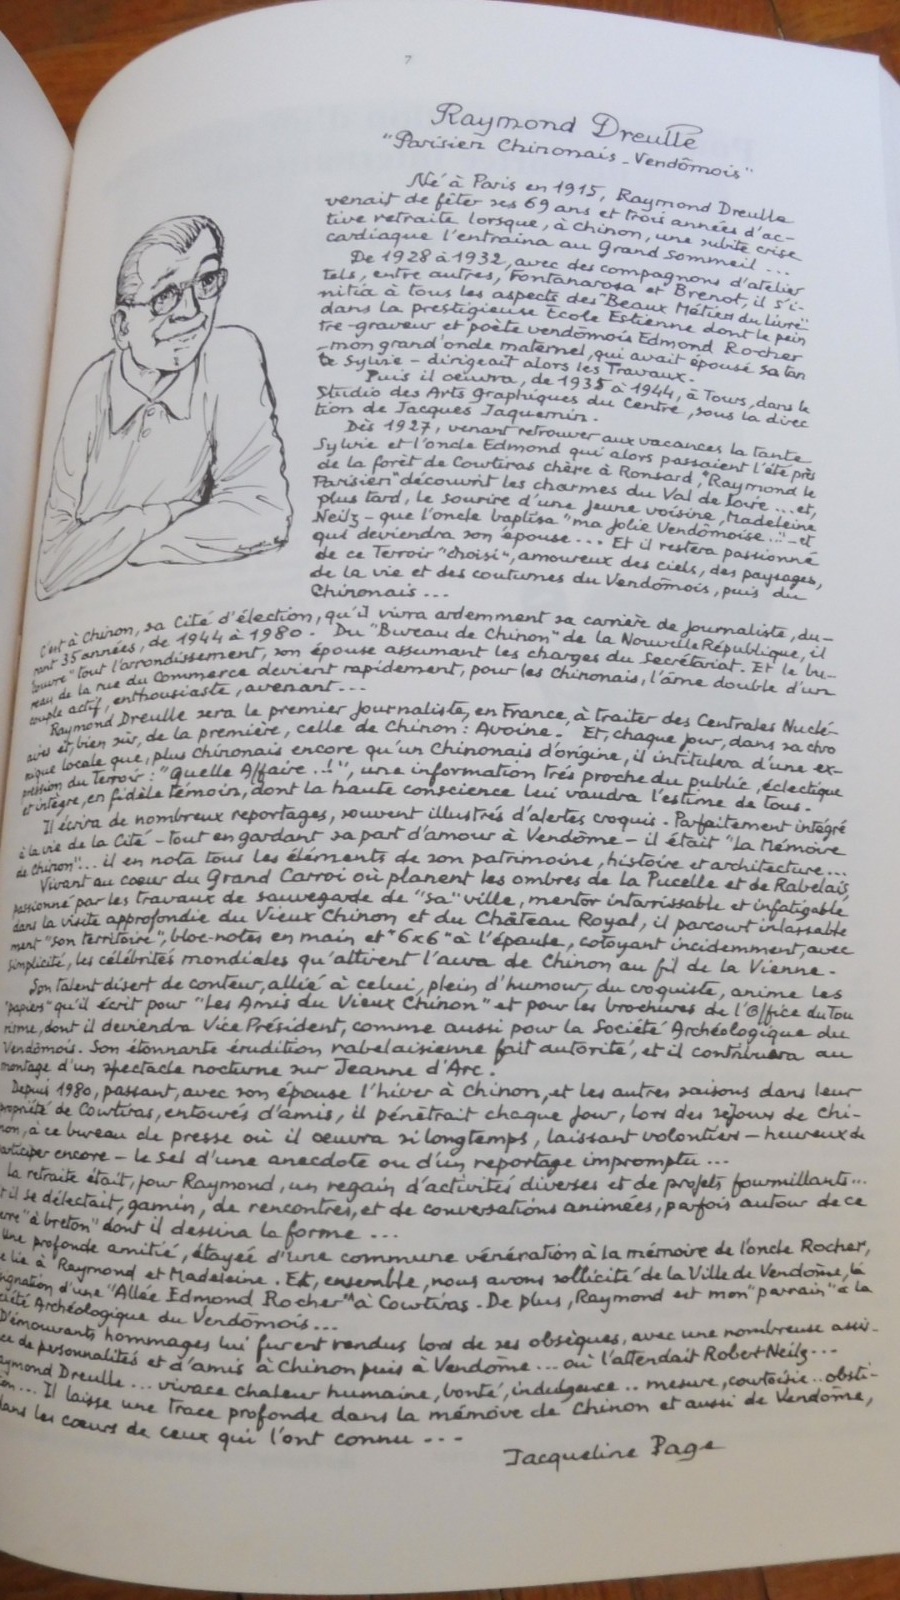 7
Raymond Dreulle
"Parisien Chinonais - Vendômois"
Né à Paris en 1915, Raymond Dreulle
venait de fêter ses 69 ans et trois années d'ac-
tive retraite lorsque, à Chinon, une subite crise
cardiaque l'entraina au Grand Sommeil ...
De 1928 à 1932, avec des compagnons d'atelier
tels, entre autres, Fontanarosa et Brenot, il s'i-
nitia à tous les aspects des "Beaux Métiers du Livre"
dans la prestigieuse Ecole Estienne dont le pein
tre-graveur et poète vendômois Edmond Rocher
-mon grand'oncle maternel, qui avait épousé sa tan
te Sylvie - dirigeait alors les Travaux.
Puis il oeuvra, de 1935 à 1944, à Tours, dans le
Studio des Arts Graphiques du Centre, sous la direc
tion de Jacques Jaquemin.
Dès 1927, venant retrouver aux vacances la tante
Sylvie et l'oncle Edmond qui alors passaient l'été près
de la forêt de Courtiras chère à Ronsard, "Raymond le
Parisien" découvrit les charmes du Val de Loire ... et,
plus tard, le sourire d'une jeune voisine, Madeleine
Neilz - que l'oncle baptisa "ma jolie Vendômoise..." - et
qui deviendra son épouse ... Et il restera passionné
de ce Terroir "choisi", amoureux des ciels, des paysages,
de la vie et des coutumes du Vendômois, puis du
Chinonais ...
C'est à Chinon, sa Cité d'élection, qu'il vivra ardemment sa carrière de journaliste, du-
rant 35 années, de 1944 à 1980. Du "Bureau de Chinon" de la Nouvelle République, il
"couvre" tout l'arrondissement, son épouse assumant les charges du Secrétariat. Et le bu-
reau de la rue du Commerce devient rapidement, pour les Chinonais, l'âme double d'un
couple actif, enthousiaste, avenant ...
Raymond Dreulle sera le premier journaliste, en France, à traiter des Centrales Nuclé-
aires et, bien sûr, de la première, celle de Chinon : Avoine. Et, chaque jour, dans sa chro
nique locale que, plus Chinonais encore qu'un Chinonais d'origine, il intitulera d'une ex-
pression du Terroir : "Quelle Affaire ..!", une information très proche du public, éclectique
et intègre, en fidèle témoin, dont la haute conscience lui vaudra l'estime de tous.
Il écrira de nombreux reportages, souvent illustrés d'alertes croquis. Parfaitement intégré
à la vie de la Cité - tout en gardant sa part d'amour à Vendôme - il était "la Mémoire
de Chinon"... il en nota tous les éléments de son patrimoine, histoire et architecture ...
Vivant au coeur du Grand Carroi où planent les ombres de la Pucelle et de Rabelais,
passionné par les travaux de sauvegarde de "sa" ville, mentor intarrissable et infatigable
dans la visite approfondie du Vieux Chinon et du Château Royal, il parcourt inlassable
ment "son territoire", bloc-notes en main et "6x6" à l'épaule, cotoyant incidemment, avec
simplicité, les célébrités mondiales qu'attirent l'aura de Chinon au fil de la Vienne.
Son talent disert de conteur, allié à celui, plein d'humour, du croquiste, anime les
"papiers" qu'il écrit pour "Les Amis du Vieux Chinon" et pour les brochures de l'Office du Tou
risme, dont il deviendra Vice Président, comme aussi pour la Société Archéologique du
Vendômois. Son étonnante érudition rabelaisienne fait autorité, et il contribuera au
montage d'un spectacle nocturne sur Jeanne d'Arc.
Depuis 1980, passant, avec son épouse l'hiver à Chinon, et les autres saisons dans leur
propriété de Courtiras, entourés d'amis, il pénétrait chaque jour, lors des sejours de Chi-
non, à ce bureau de presse où il œuvra si longtemps, laissant volontiers - heureux de
participer encore - le sel d'une anecdote ou d'un reportage impromptu ...
La retraite était, pour Raymond, un regain d'activités diverses et de projets fourmillants ...
il se délectait, gamin, de rencontres, et de conversations animées, parfois autour de ce
"à breton" dont il dessina la forme ...
Une profonde amitié, étayée d'une commune vénération à la mémoire de l'oncle Rocher,
lie à Raymond et Madeleine. Et, ensemble, nous avons sollicité de la Ville de Vendôme, la
d'une "Allée Edmond Rocher" à Courtiras. De plus, Raymond est mon "parrain" à la
Archéologique du Vendômois ...
D'émouvants hommages lui furent rendus lors de ses obsèques, avec une nombreuse assis-
de personnalités et d'amis à Chinon puis à Vendome ... où l'attendait Robert Neilz ...
Raymond Dreulle ... vivace chaleur humaine, bonté, indulgence .. mesure, courtoisie .. obsti-
... Il laisse une trace profonde dans la mémoire de Chinon et aussi de Vendôme,
dans les coeurs de ceux qui l'ont connu ...
Jacqueline Page